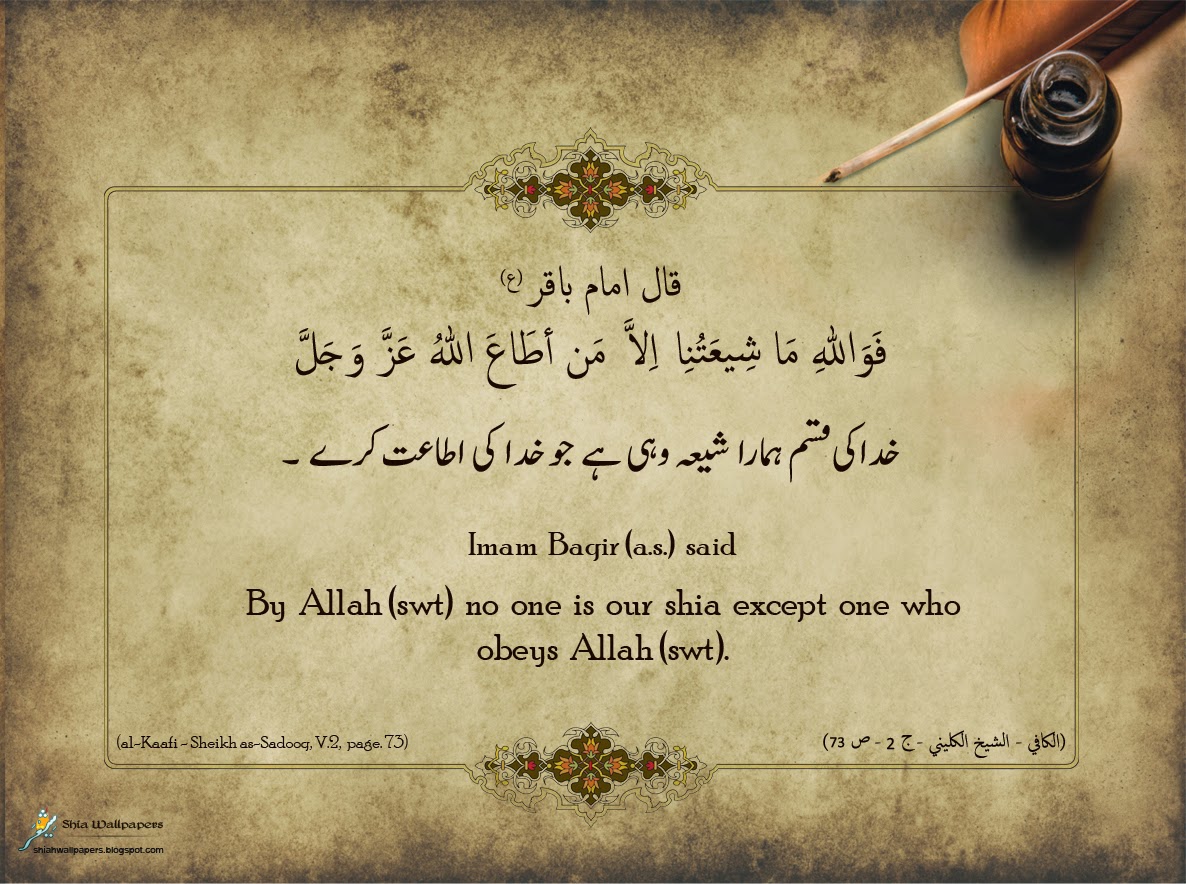 قال امام باقر (ع)
فَوَاللهِ مَا شِيعَتُنِا اِلاَّ مَن أطَاعَ اللهُ عَزَّ وَجَلَّ
خدا کی قسم ہمارا شیعہ وہی ہے جو خدا کی اطاعت کرے ۔
Imam Baqir (a.s.) said
By Allah (swt) no one is our shia except one who
obeys Allah (swt).
(al-Kaafi - Sheikh as-Sadooq, V.2, page. 73)
(الكافي - الشيخ الكليني - ج 2 - ص 73)
Shia Wallpapers
shiahwallpapers.blogspot.com